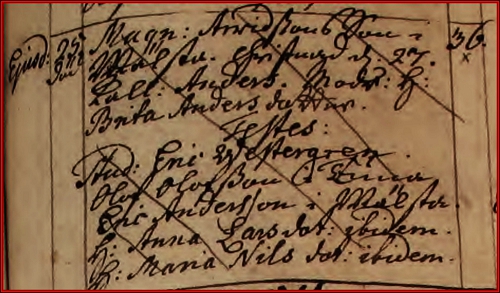 Magn: Arvidssons Son i 36.
Ejusd: Mälsta. christnad d: 27.
kall: Anders. Modr: H:
Brita Anders dotter.
Testes:
Stud: Eric Westergren
Olof Olofsson i
Eric Andersson i Mälsta.
H: Anna Lars dot: ibidem.
H: Maria Nils dot: ibidem.